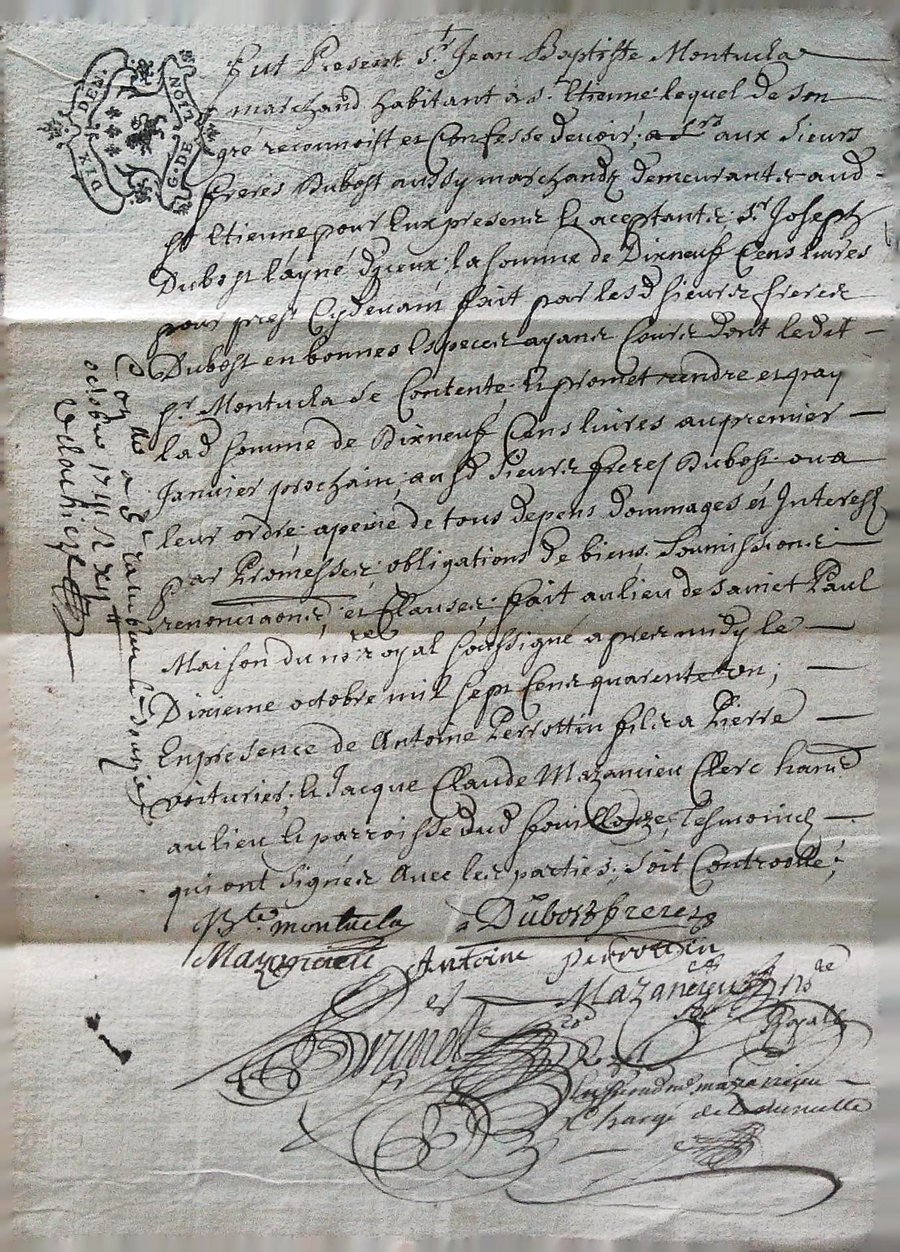 DIX DEN.
G. DE LION
fut Present sr. Jean Baptiste Montucla
marchand habitant a st. Etienne lequel de son
gré reconnoist et Confesse devoir, aux sieurs
freres Dubost aussy marchands demeurants aud
st Etienne pour Eux present & aceptants, sr Joseph
Dubost layné dyceux, la somme de Dixneuf Cens livres
pour prest Cydevant fait par lesd sieurs freres
Dubost en bonnes Especes ayant Cours dont ledit
sr. Montucla se Contente, & promet rendre et pay
lad somme de Dixneuf Cens livres au premier
Janvier prochain, ausd sieurs freres Dubost ou a
leur ordre, apeine de tous depens dommages et Interests
Par Promesses, obligations de biens, Soumissions
renonciaons, et Clauses, fait au lieu de sainct Paul
Maison du nore royal soussigné apres midy le
Dixieme octobre mil sept Cens quarente un,
En presence de Antoine Perrottin fils a Pierre
voiturier, & Jacque Claude Mazancieu Clerc hand
au lieu & parroisse dud fouillouze, Tesmoins
qui ont signés Avec les parties, soit Controollé,
Bte. montucla Dubost freres
Mazancieu Antoine perrottin
et Mazancieu nore
Royal
Royal
mazancieu
Chargé de la minutte
Con lle a st rambert le douze
octobre 1741